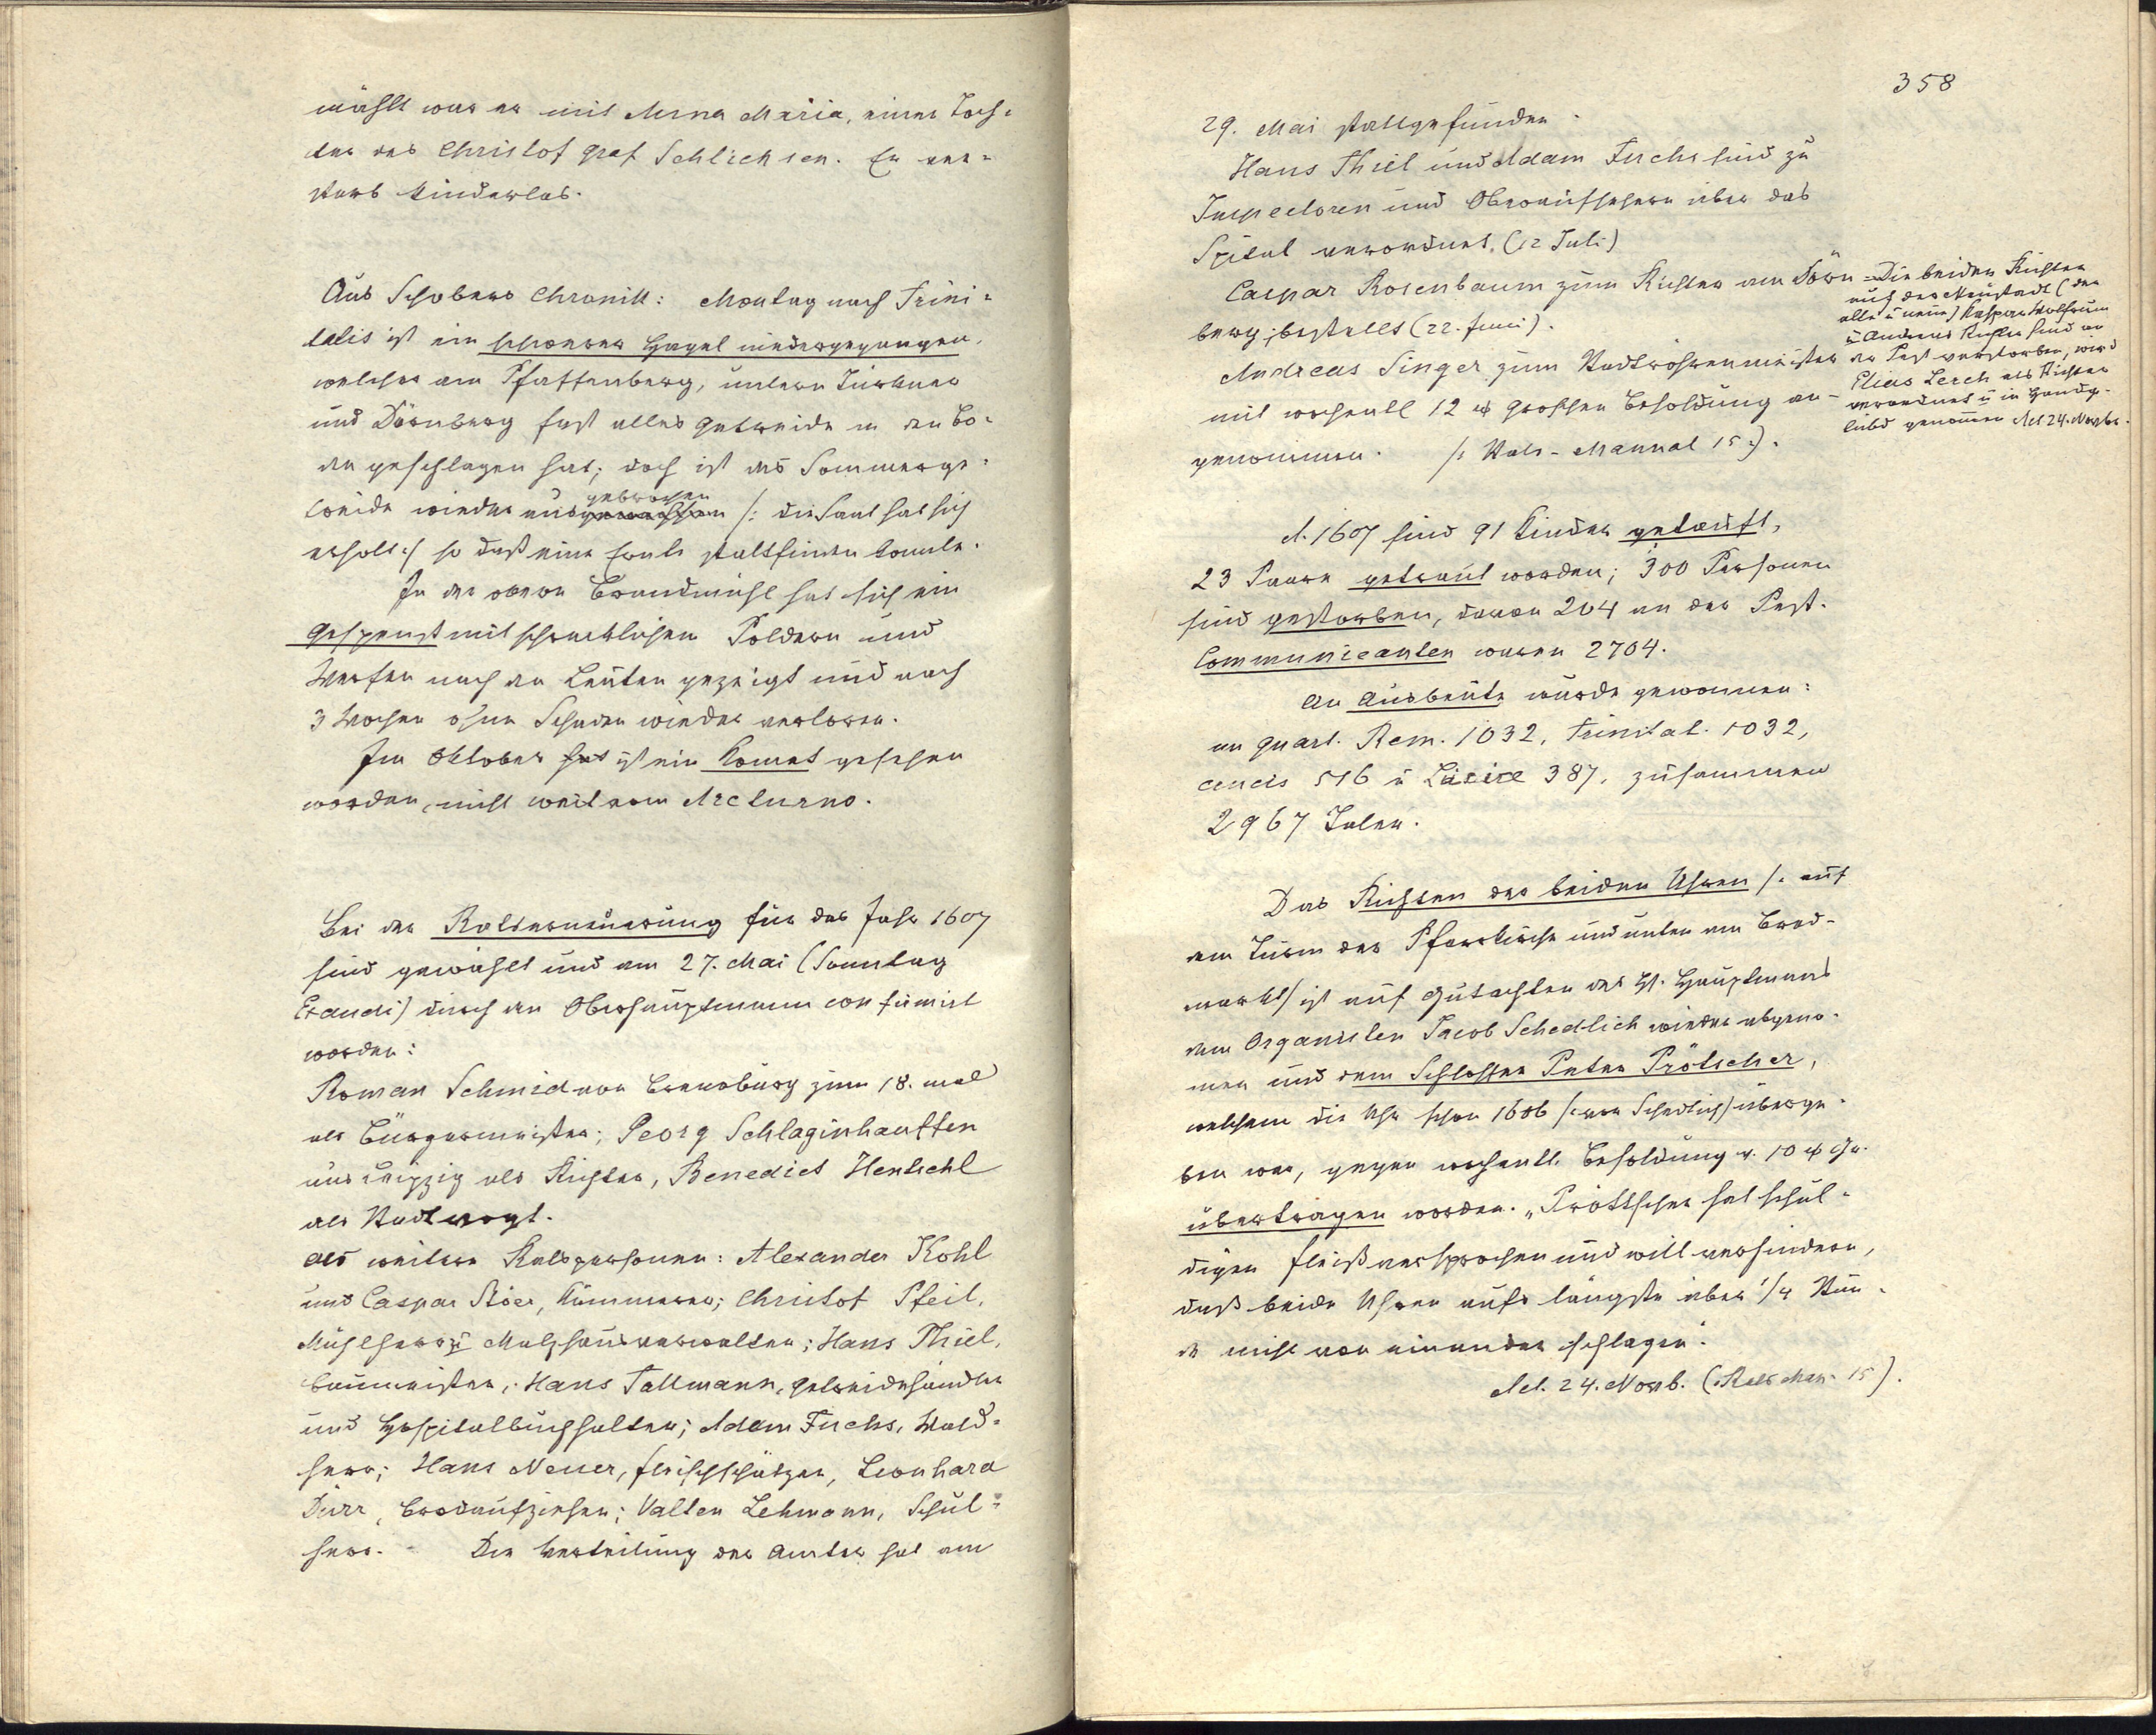 mählt war er mit Anna Maria, einer Toch-
ter des Christof Graf Schlick sen. Er ver-
starb kinderlos.
Aus Schobers Chronik: Montag nach Trini-
tatis ist ein schwerer Hagel niedergegangen,
welcher am Pfaffenberg, untern Türkner
und Dörnberg fast alles Getreide in den Bo-
den geschlagen hat; doch ist das Sommerge-
treide wieder ausgebrochen /: die Saat hat sich
erholt :/ so daß eine Ernte stattfinden konnte.
In der obern Brandmühl hat sich ein
Gespenst mit schrecklichem Poldern und
Werfen nach den Leuten gezeigt und nach
3 Wochen ohne Schaden wieder verloren.
Im Oktober hat ist ein Komet gesehen
worden, nicht weit vom Arcturno.
Bei der Ratserneuerung für das Jahr 1607
sind gewählt und am 27. Mai (Sonntag
Exaudi) durch den Oberhauptmann confirmirt
worden:
Roman Schmid von Brensburg zum 18. mal
als Bürgermeister; Georg Schlaginhauffen
aus Leipzig als Richter, Benedict Hentschl
als Stadtvogt.
Als weitere Ratspersonen: Alexander Kohl
und Caspar Stöer, Kämmerer; Christof Pfeil,
Mühlherr u Malzhausverwalter; Hans Thiel,
Baumeister; Hans Tallmann, Getreidehändler
und Hospitalbuchhalter; Adam Fuchs, Wald-
herr; Hans Neuer, Fleischschätzer, Leonhard
Dürr, Brodaufzieher; Valten Lehmann, Schul-
herr. - Die Verteilung der Ämter hat am
358
29. Mai stattgefunden.
Hans Thiel und Adam Fuchs sind zu
Inspectoren und Oberaufsehern über das
Spital verordnet. (12 Juli)
Caspar Rosenbaum zum Richter am Dörn-
berg bestellt (22. Juni).
Andreas Singer zum Stadtröhrenmeister
mit wochentl 12 w Groschen Besoldung an-
genommen. /: Rats-Manual 15 :/.
Die beiden Richter
auf der Neustadt (der
alte u neue) Kaspar Wolfrum
u Andreas Richter sind an
der Pest verstorben, wird
Elias Lerch als Richter
verordnet u in Handge-
lübd genommen Act 24. Novbr.
A. 1607 sind 91 Kinder getauft,
23 Paare getraut worden; 300 Personen
sind gestorben, davon 204 an der Pest.
Communicanten waren 2704.
An Ausbeute wurde gewonnen:
im Quart. Rem. 1032, Trinitat. 1032,
crucis 516 u Lucie 387, zusammen
2967 Taler.
Das Richten der beiden Uhren /: auf
dem Turm der Pfarrkirche und unten am Brod-
markt/ ist auf Gutachten des H. Hauptmanns
dem Organisten Jacob Schedlich wieder abgeno-
men und dem Schlosser Peter Prötscher,
welchem die Uhr schon 1606 /: von Schedlich/ überge-
ben war, gegen wochentl. Besoldung v. 10 w Gr.
übertragen worden. „Pröttscher hat schul-
digen Fleiß versprochen und will verhindern,
daß beide Uhren aufs längste über 1/4 Stun-
de nicht von einander schlagen.“
Act. 24. Novb. (Rats Man. 15).